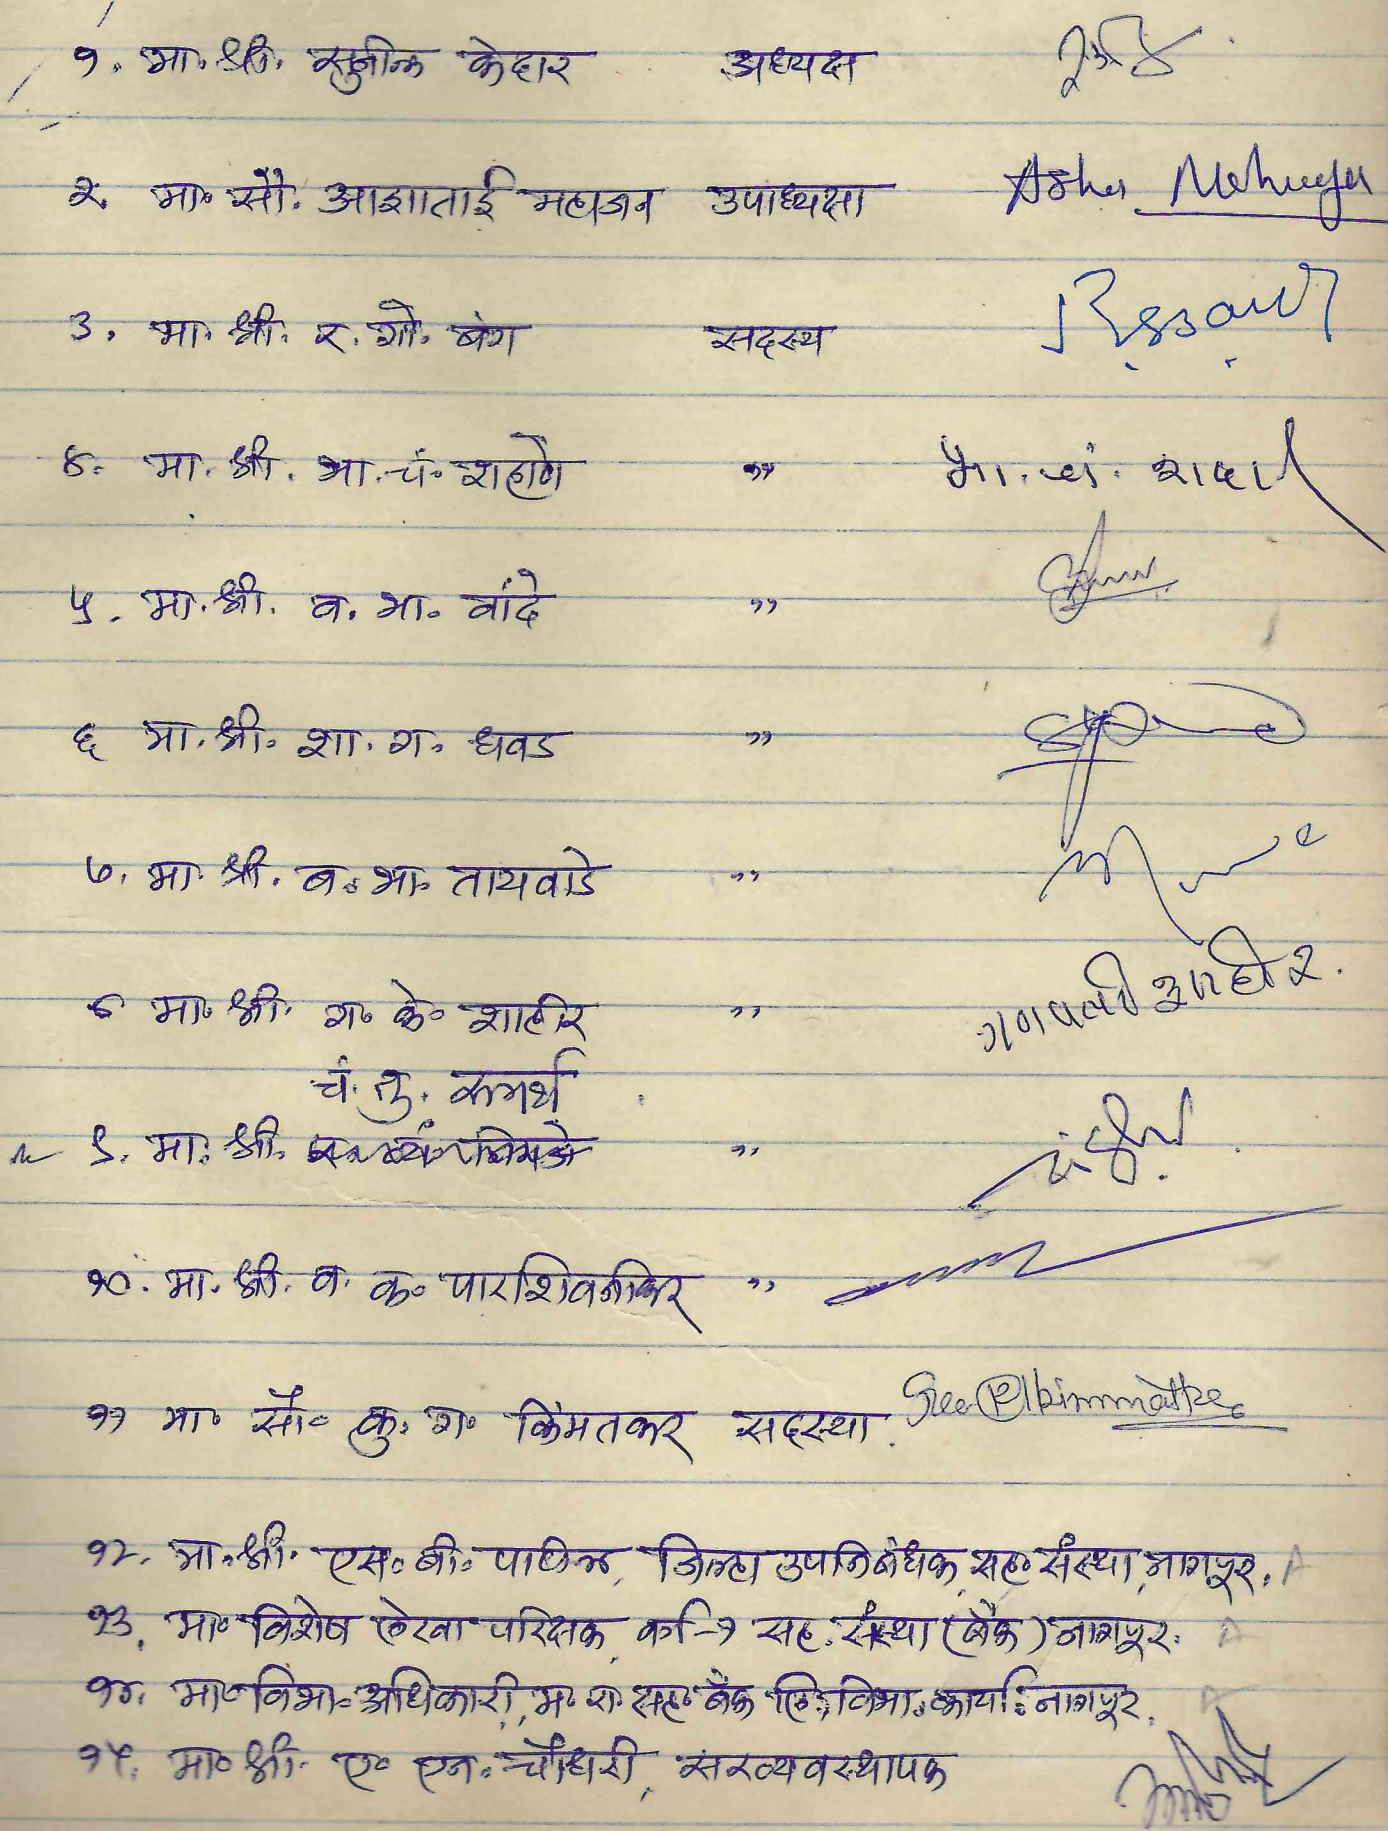 १. मा. श्री. सुनील केदार अध्यक्ष
२. मा. सौ. आशाताई महाजन उपाध्यक्षा Asha Mahajan
३. मा. श्री. र. गो. बंग सदस्य
४. मा. श्री. भा. चं. शहाणे ,, भा. चं.
५. मा. श्री. व. भा. वांदे ,,
६ मा. श्री. शा. ग. धवड ,,
७. मा. श्री. ब. भा. तायवाडे ,,
८ मा. श्री. ग. के. शाहीर ,, गणपती शाहीर.
चं. तु. समर्थ
९. मा. श्री. ,,
१०. मा. श्री. व. क. पारशिवनीकर ,,
११ मा. सौ. कु. ग. किंमतकर सदस्या.
१२. मा. श्री. एस. बी. पाटील, जिल्हा उपनिबंधक, सह. संस्था, नागपूर. A
१३. मा. विशेष लेखा परिक्षक, वर्ग-१ सह. संस्था (बँक) नागपूर. A
१४. मा. विभा. अधिकारी, म. रा. सह. बँक लि., विभा. कार्या. नागपूर. A
१५. मा. श्री. ए. एन. चौधरी, सरव्यवस्थापक